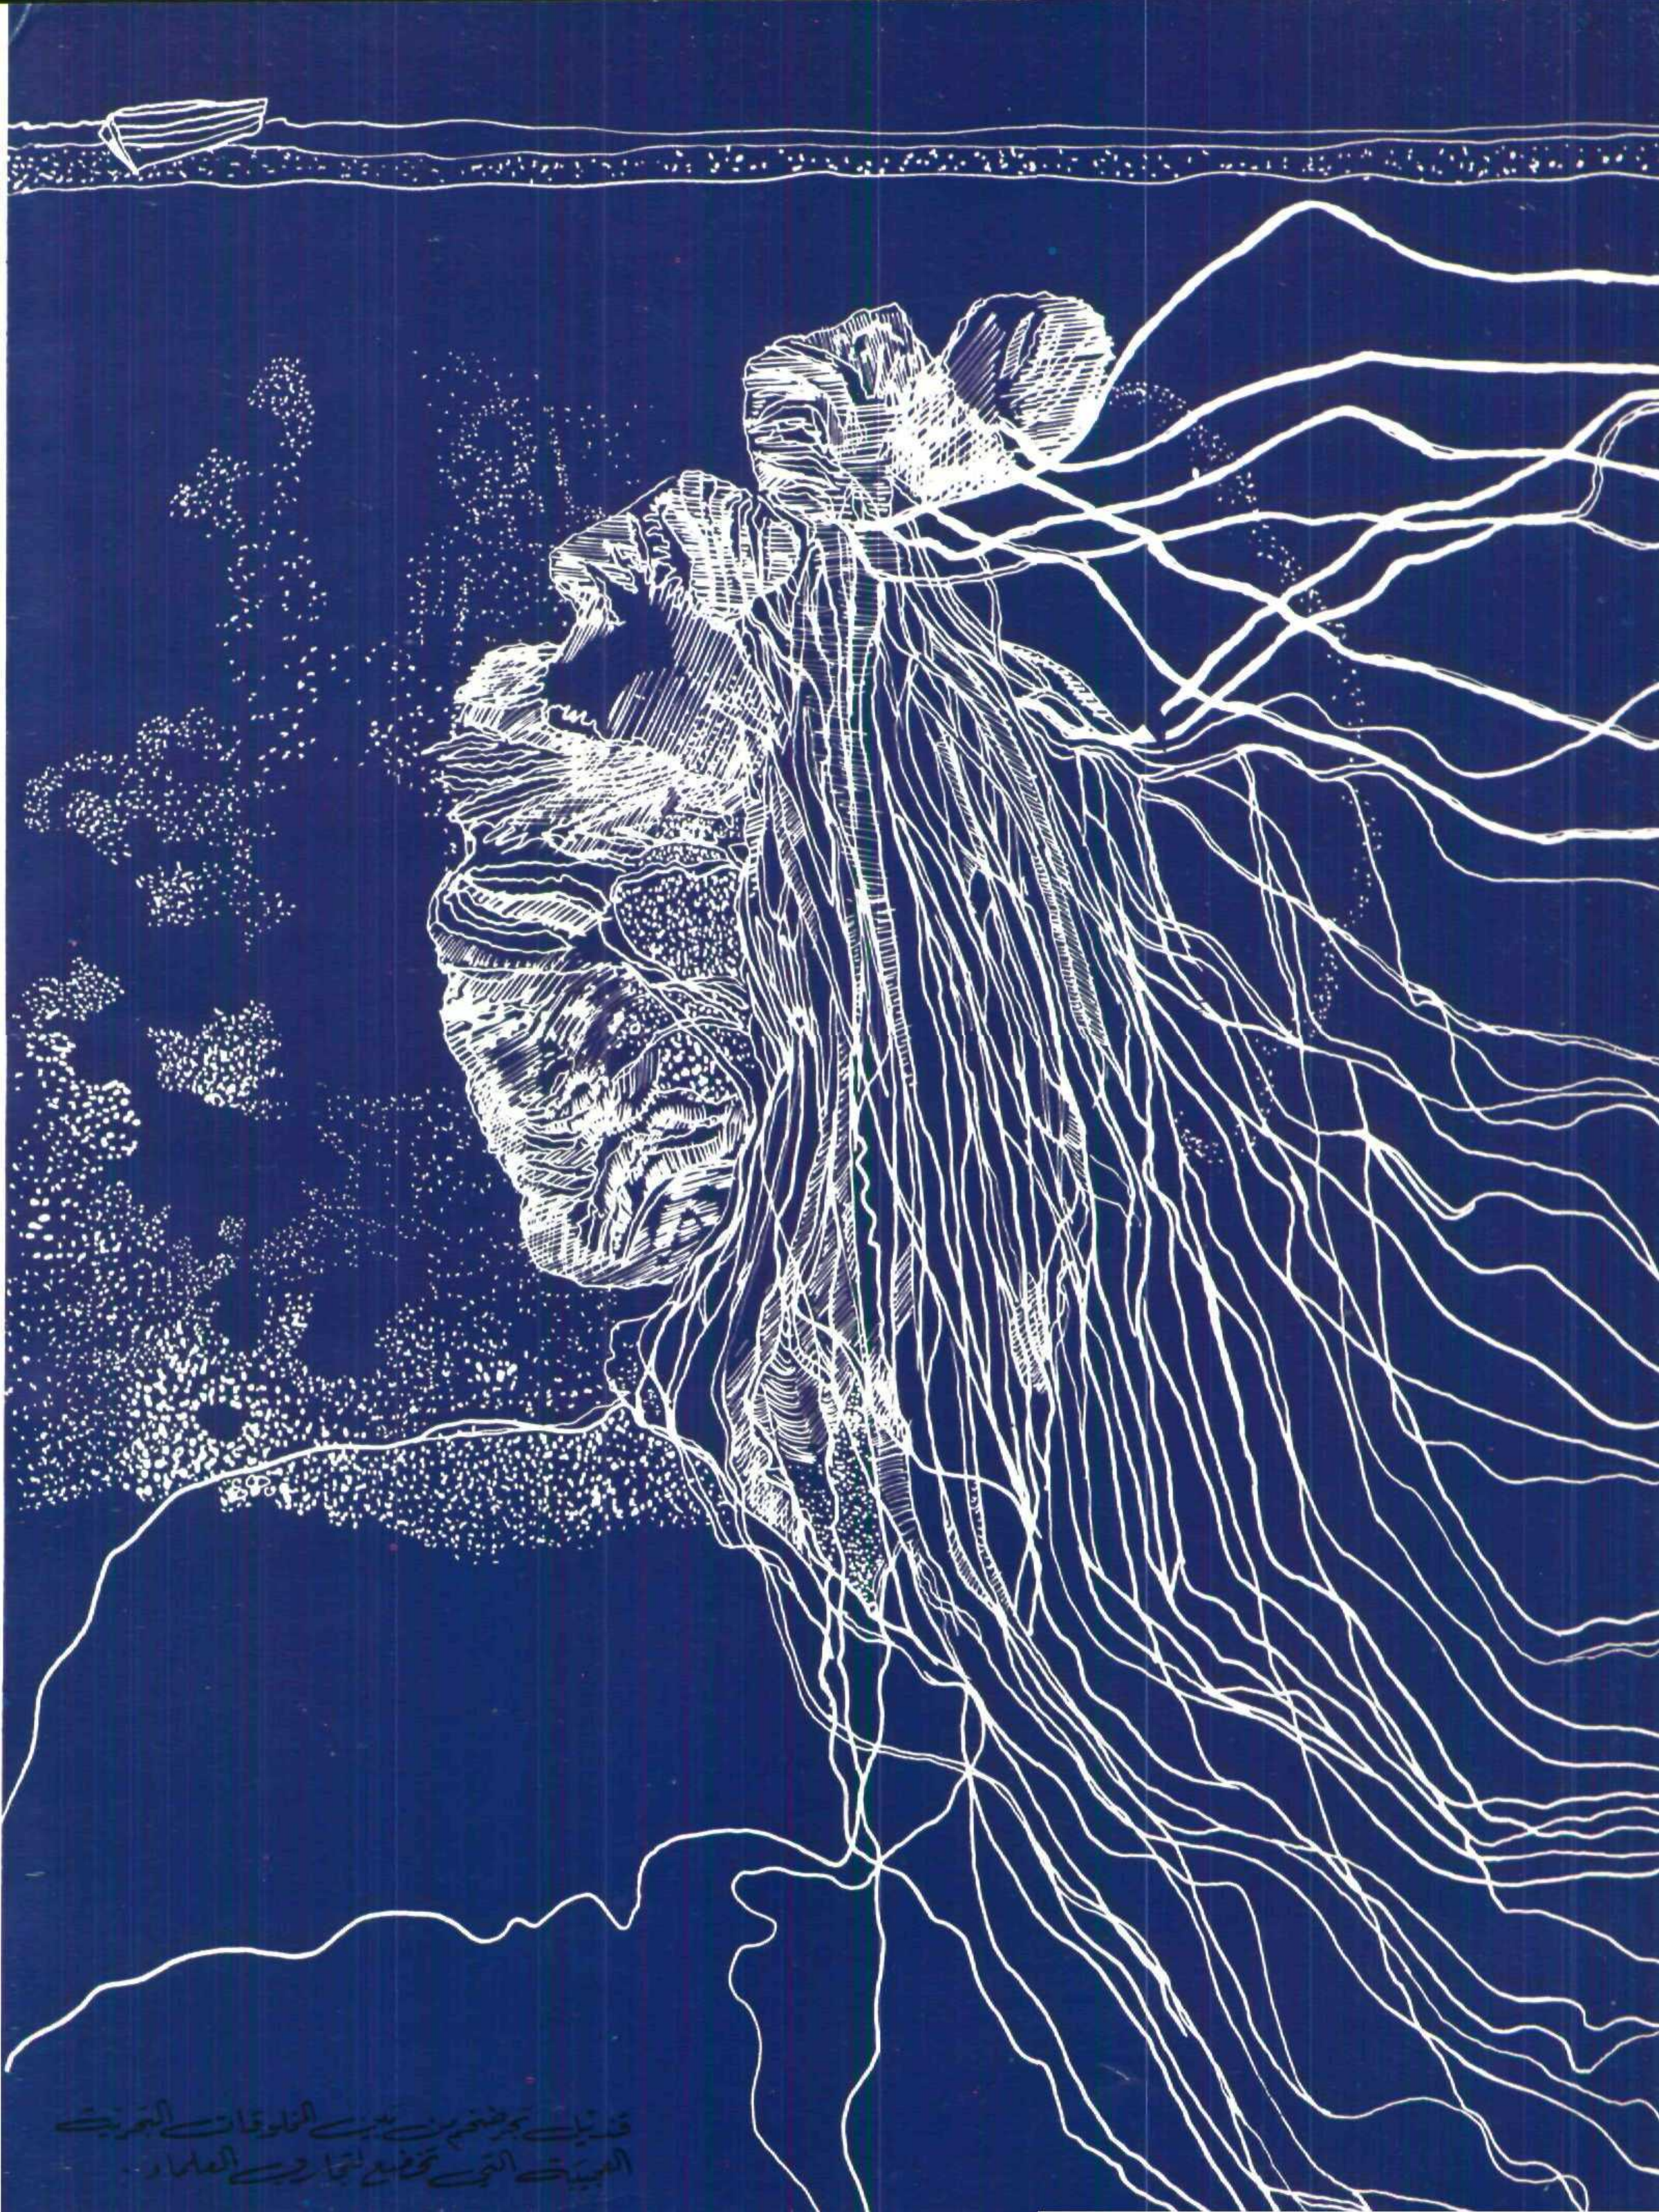 قنديل بحر ضخم من بين المخلوقات البحرية
العجيبة التي تخضع لتجارب العلماء .